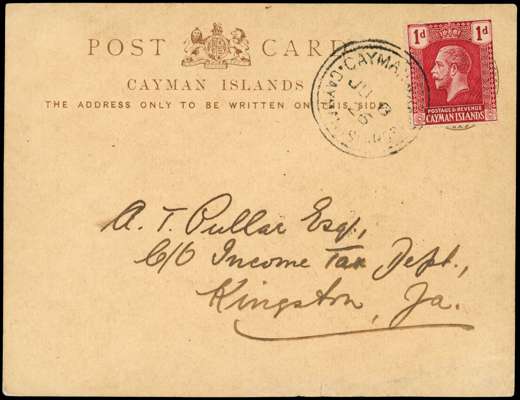 POST CARD
CAYMAN ISLANDS
THE ADDRESS ONLY TO BE WRITTEN ON THIS SIDE
1d 1d
POSTAGE & REVENUE
CAYMAN ISLANDS
CAYMAN
JU 8
26
A. T. Pullar Esq,
C/O Income Tax Dept.,
Kingston, Ja.